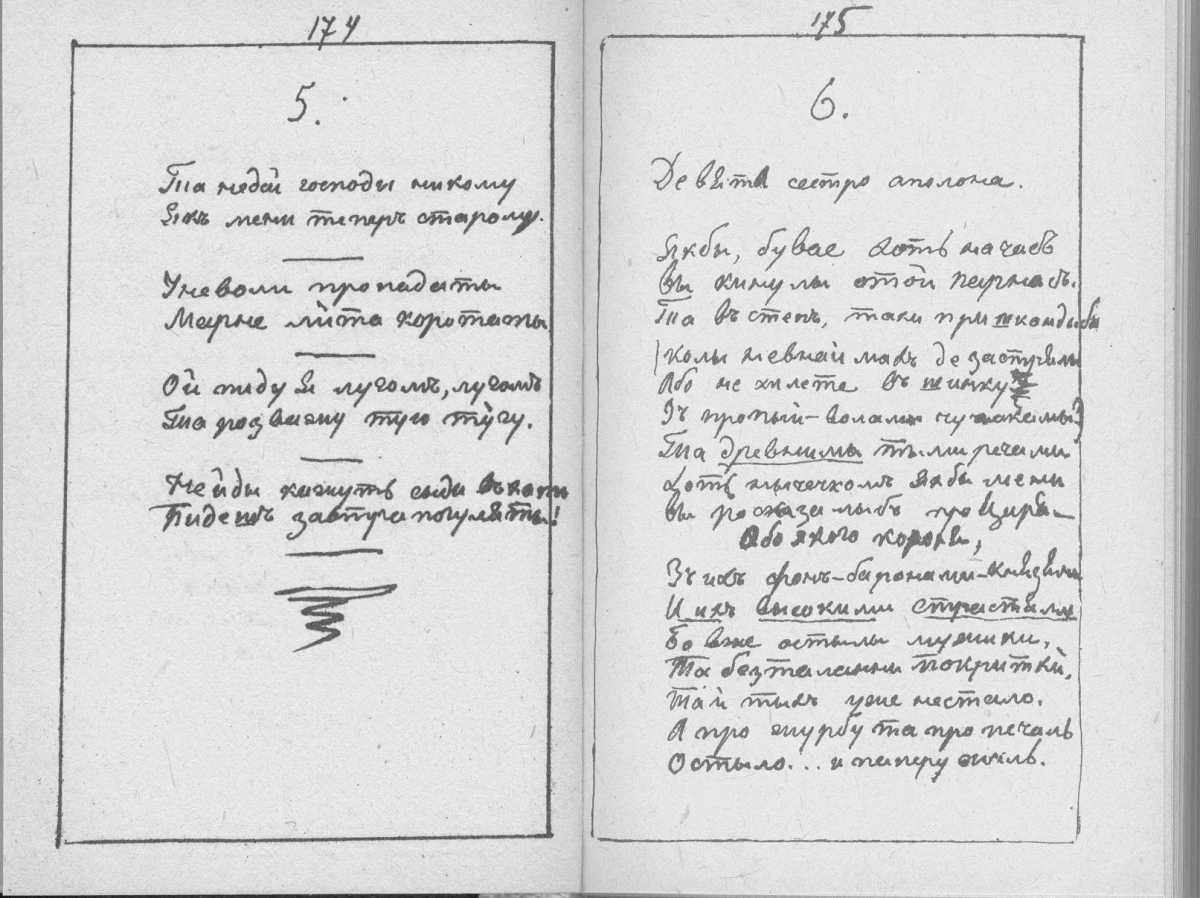 174
5.
Та недай господы никому
Якъ мени теперъ старому.
Уневоли пропадаты
Марне лита коротаты
Ой пиду Я лугомъ, лугомъ
Та розважу тую тугу.
Не йды кажуть сыды въ хати
Пидешъ завтра погуляты!
175
6.
Девята сестро аполона.
Якбы, бувае хоть на часъ
Вы кинулы отой парнасъ.
Та въ степъ, таки пришкандыбай
колы макъ де
Або не хилете въ шинку
Зъ пропый-воламы чумакамы
Та древнимы тымы речами
Хоть нычечкомъ Якбы мени
Вы росказалыбъ про Царя-
Або якого короля,
Зъ ихъ фонъ-баронами-князямы
И ихъ высокими страстямы
Бо вже остылы мужики,
Та безталанни покритки,
Тай тыхъ уже нестало.
А про журбу та про печаль
Остыло... и паперу жаль.